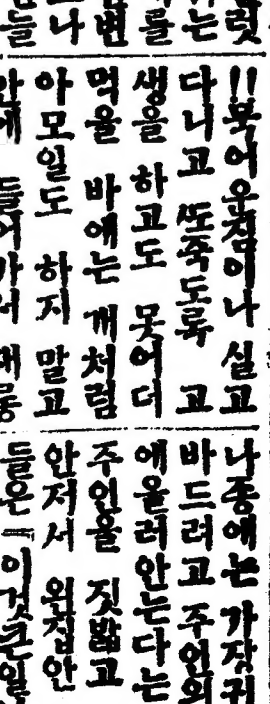 럿
는
를
번
나
들
!!북어우짐이나 실고
다니고 ᄯᅩ죽도록 고
생을 하고도 못어더
먹을 바애는 개처럼
아모일도 하지 말고
안에 들어가서 재롱
나종애는 가장귀
바드려고 주인의
애올러안는다는
주인을 짓밟고
안저서 왼집안
들은 『이것큰일